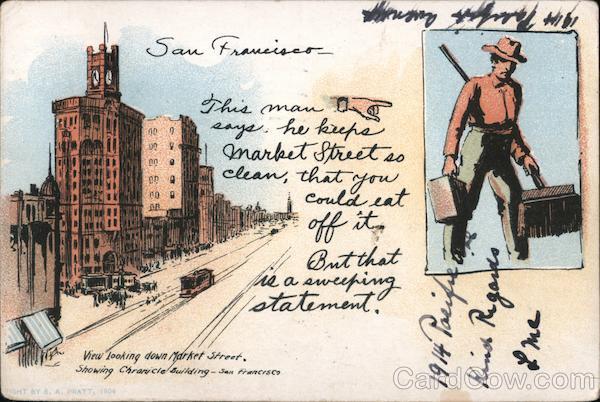 San Francisco
This man
says he keeps
Market Street so
clean, that you
could eat
off it.
But that
is a sweeping
statement.
View Looking down Market Street.
Showing Chronicle Building - San Francisco
GHT BY E. A. PRATT, 1904
1914 Pacific ave
Kind Regards
1914
CardCow.com